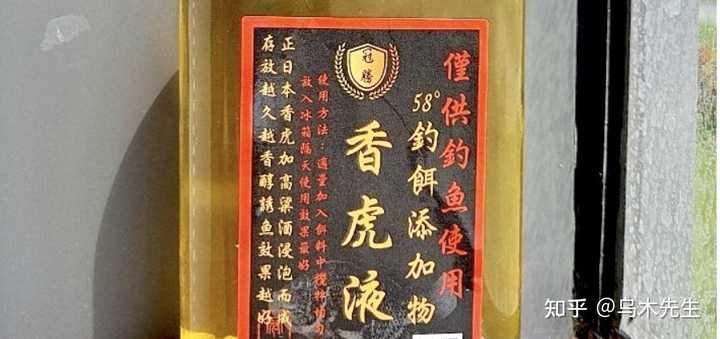 僅供釣魚使用
58°釣餌添加物
冠
勝
香虎液
使用方法：適量加入餌料中攪拌均勻
放入冰箱隔天使用效果最好
正日本香虎加高粱酒浸泡而成
存放越久越香醇誘魚效果越好
知乎 @乌木先生